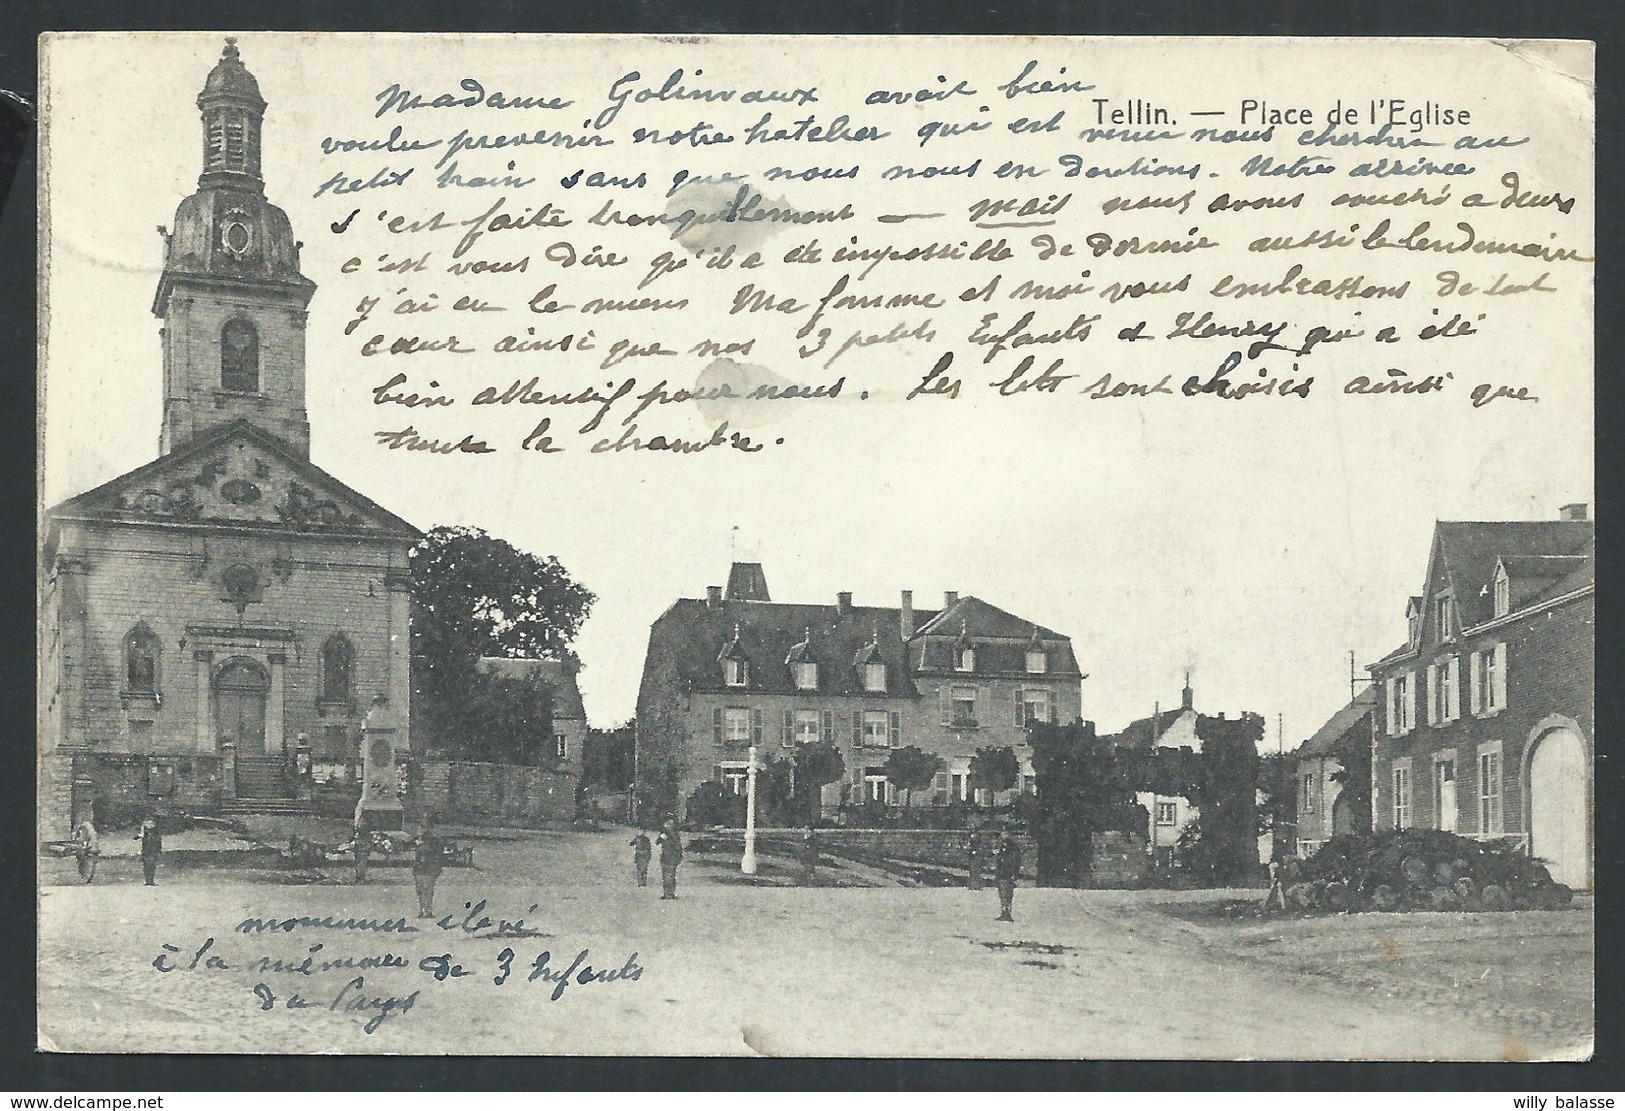 Madame Golinvaux avait bien
Tellin. — Place de l'Eglise
voulu prevenir notre hotelier qui est venu nous chercher au
petit train sans que nous nous en doutions. Notre arrivée
s'est faite tranquillement — mais nous avons couché a deux
c'est vous dire qu'il a été impossible de dormir aussi le lendemain
j'ai eu le mien Ma femme et moi vous embrassons de tout
cœur ainsi que nos 3 petits Enfants et Henry qui a été
bien attentif pour nous. Les lits sont choisis ainsi que
toute la chambre.
monument élevé
à la mémoire de 3 Enfants
du Pays
willy balasse